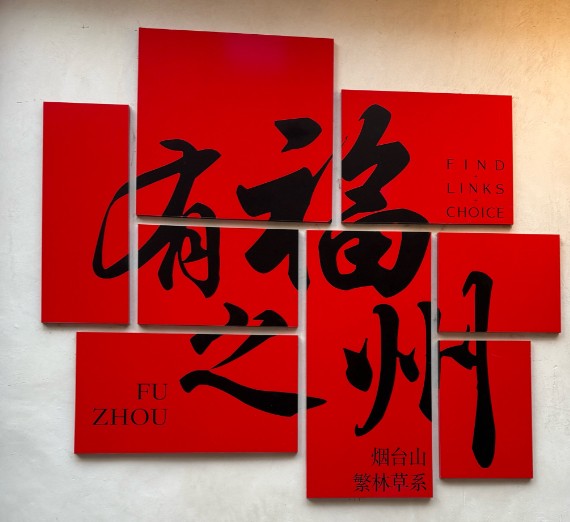 有福
之州
FIND
LINKS
CHOICE
FU
ZHOU
烟台山
繁林草系